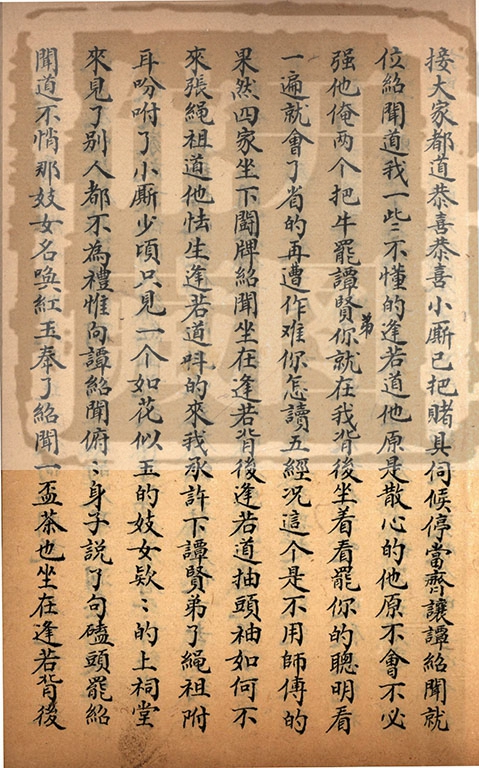 接大家都道恭喜恭喜小厮已把賭具伺候停當齊讓譚紹聞就
位紹聞道我一些〻不懂的逢若道他原是散心的他原不會不必
强他俺两个把牛罷譚賢弟你就在我背後坐着看罷你的聰明看
一遍就會了省的再遭作难你怎讀五經况這个是不用師傅的
果然四家坐下鬪牌紹聞坐在逢若背後逢若道抽頭袖如何不
來張繩祖道他怯生逢若道呌的來我承許下譚賢弟了繩祖附
耳吩咐了小厮少頃只見一个如花似玉的妓女欵〻的上祠堂
來見了别人都不為禮惟向譚紹聞俯〻身子説了句磕頭罷紹
聞道不悄那妓女名喚紅玉奉了紹聞一盃茶也坐在逢若背後